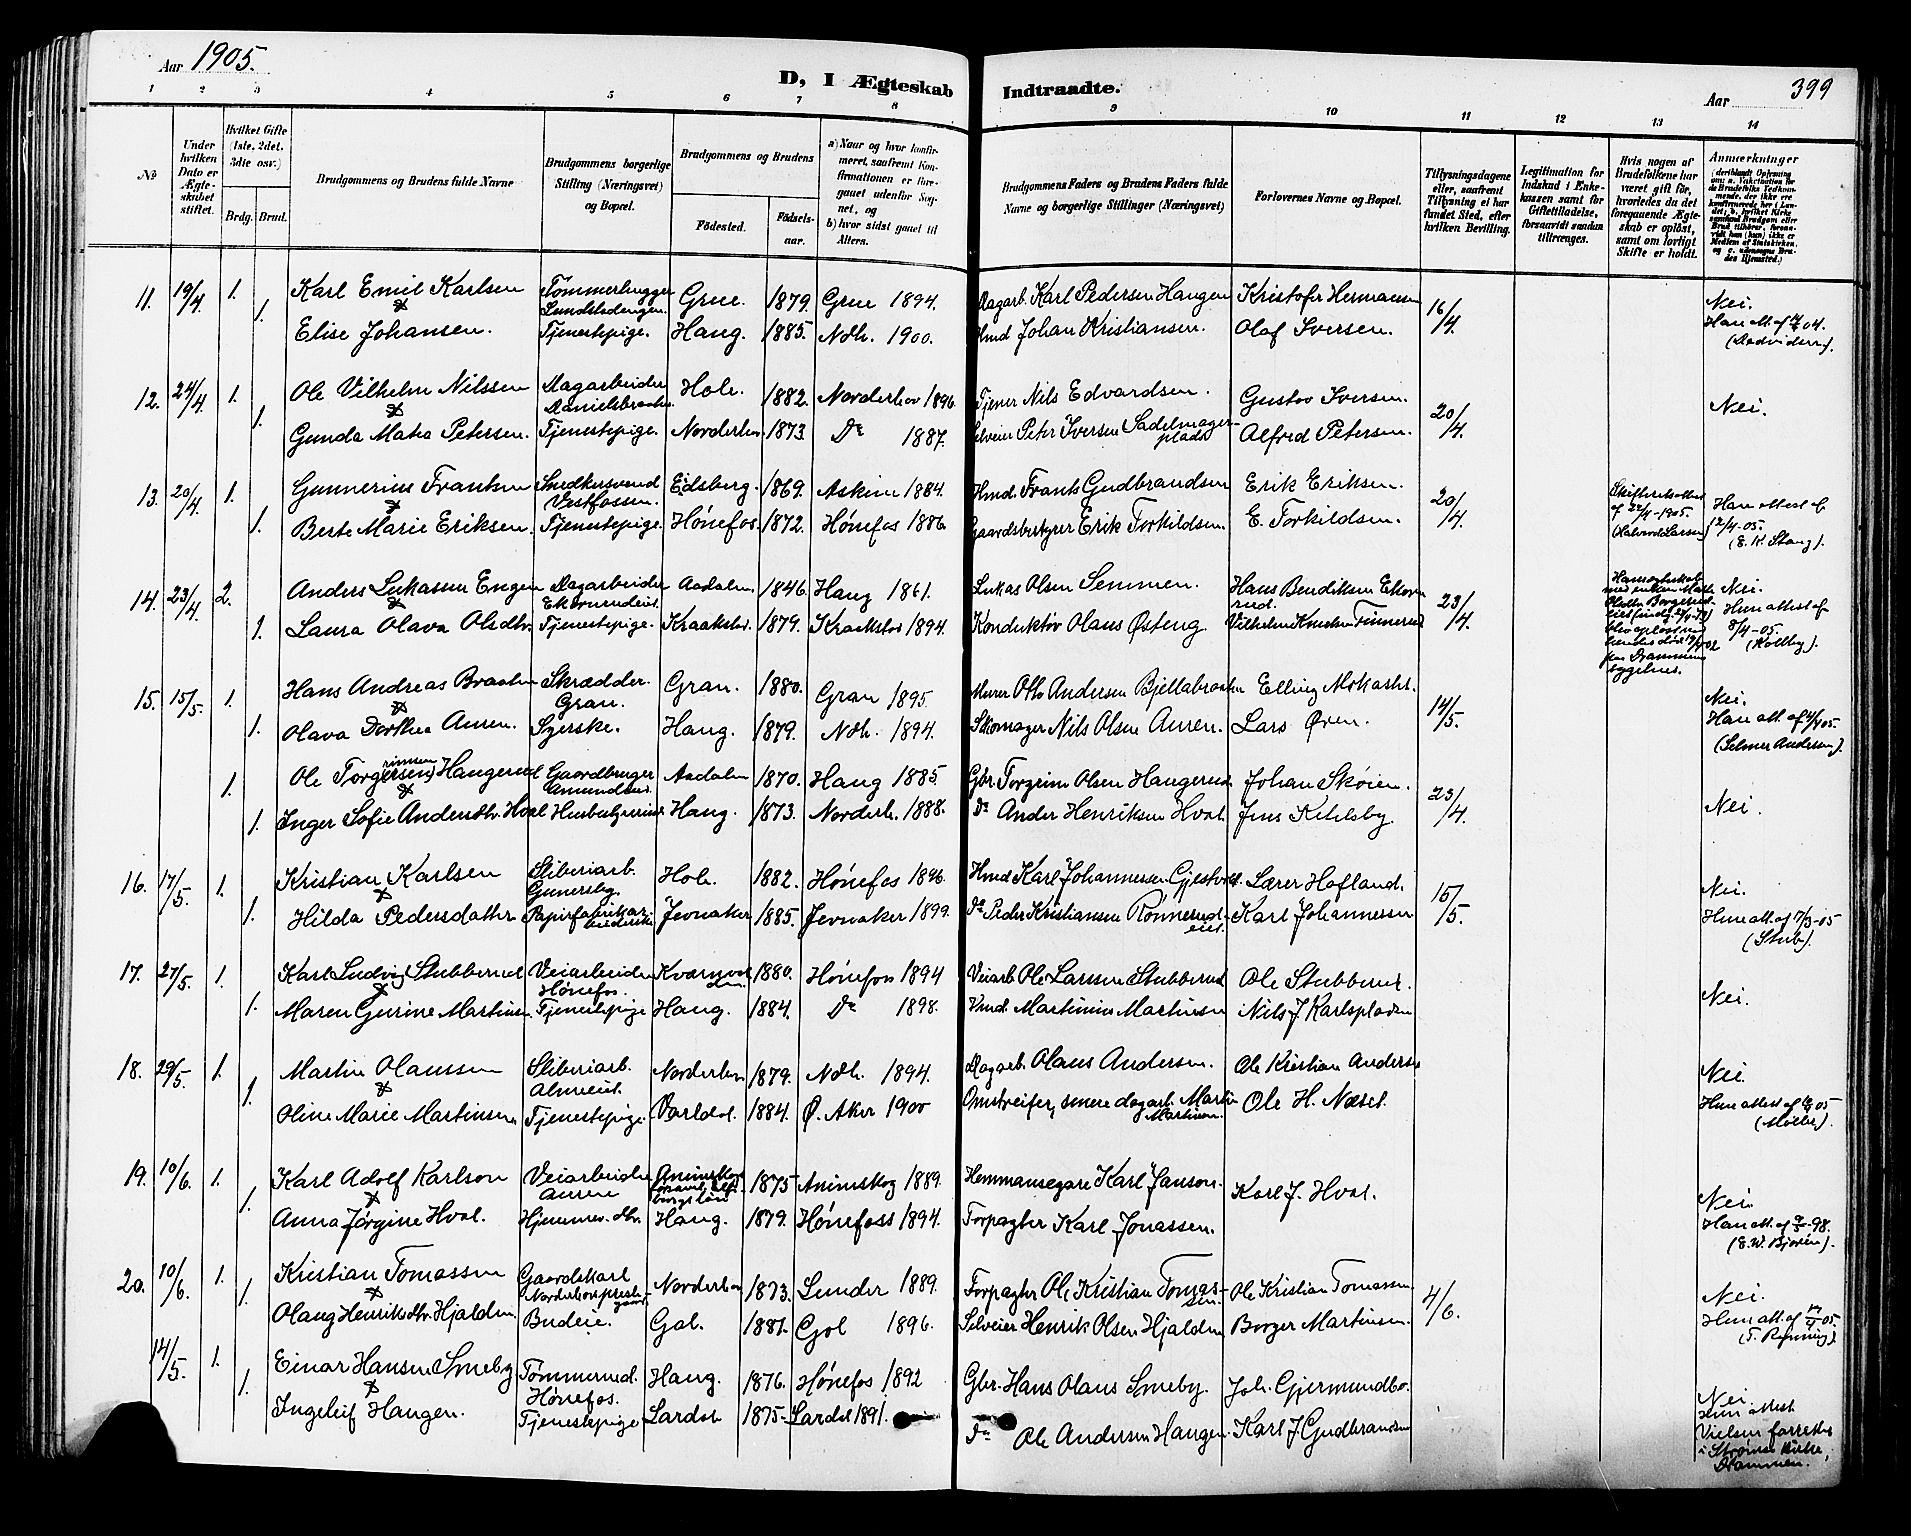 Aar 1905.
D, I Ægteskab Indtraadte.
Aar 399
1 2 3 4 5 6 7 8 9 10 11 12 13 14
No
Under hvilken Dato er Ægteskabet stiftet.
Hvilket Gifte (1ste, 2det, 3die osv.)
Brdg. Brud.
Brudgommens og Brudens fulde Navne
Brudgommens borgerlige Stilling (Næringsvei) og Bopæl.
Brudgommens og Brudens
Fødested.
Fødselsaar.
a) Naar og hvor konfirmeret, saafremt Konfirmationen er foregaaet udenfor Sognet, og
b) hvor sidst gaaet til Alters.
Brudgommens Faders og Brudens Faders fulde Navne og borgerlige Stillinger (Næringsvei)
Forlovernes Navne og Bopæl.
Tillysningsdagene eller, saafremt Tillysning ei har fundet Sted, efter hvilken Bevilling.
Legitimation for Indskud i Enkekassen samt for Giftetilladelse, forsaavidt saadan tiltrænges.
Hvis nogen af Brudefolkene har været gift før, hvorledes da det foregaaende Ægteskab er opløst, samt om lovligt Skifte er holdt.
Anmærkninger
11. 19/4 1. Karl Emil Karlsen Tømmerhugger Grue. 1879. Grue 1894. Dagarb. Karl Pedersen Haugen Kristofer Hermansen 16/4 Nei.
1. Elise Johansen. Tjenestepige. Haug. 1885. Ndh. 1900. Hmd Johan Kristiansen. Olaf Iversen.
12. 24/4 1. Ole Vilhelm Nilssen Dagarbeider Hole. 1882. Norderhov 1896 Tjener Nils Edvardsen. Gustav Iversen. 20/4 Nei.
1. Gunda Matea Petersen. Tjenestepige. Norderhov 1873 Do 1887. Selveier Peter Iversen Sadelmagerplads Alfred Petersen.
13. 20/4 1. Gunnerius Frantsen Snedkersvend Vestfossen. Eidsberg. 1869. Askim 1884. Hmd. Frants Gudbrandsen Erik Eriksen. 20/4 Skifteretsattest af 22/4-1905. Han attest af 12/4-05. (E. K. Stang).
1. Berte Marie Eriksen. Tjenestepige. Hønefos. 1872. Hønefos 1886 Gaardsbestyrer Erik Torkildsen. E. Torkildsen.
14. 23/4 2. Anders Lukassen Engen Dagarbeider Aadalen 1846. Haug 1861. Lukas Olsen Semmen. Hans Bendiksen 23/4 Nei.
1. Laura Olava Olsdtr. Tjenestepige. Kraakstad. 1879. Kraakstad 1894. Konduktør Olaus Østeng. Vilhelm Knudsen Hun attest af 8/4-05. (Kolby).
15. 15/5. 1. Hans Andreas Braaten Skrædder. Gran. Gran. 1880. Gran 1895. Murer Otto Andersen Bjellabraaten Elling Mokastet. 14/5 Nei.
1. Olava Dorthea Auren. Syerske. Haug. 1879. Ndh. 1894. Skomager Nils Olsen Auren. Lars Øren. (Selmer Andersen).
1. Ole Torgersen Haugerud Gaardbruger Aadalen 1870. Haug 1885 Gbr. Torgrim Olsen Haugerud Johan Skøien. 23/4 Nei.
1. Inger Sofie Andersdtr. Hval Husbestyrerinde Haug. 1873. Norderh. 1888. Do Anders Henriksen Hval. Jens Kihlsby.
16. 17/5. 1. Kristian Karlsen Sliberiarb. Hole. 1882. Hønefos 1896 Hmd Karl Johannessen Lærer Hofland. 15/5 Nei.
1. Hilda Pedersdatter Jevnaker 1885. Jevnaker 1899. Do Peder Kristiansen Rønnerudeiet. Karl Johannessen Hun att. af 7/3-05 (Stub).
17. 27/5. 1. Karl Ludvig Stubberud Veiarbeider Hønefos. 1880. Hønefos 1894 Veiarb. Ole Larsen Stubberud Ole Stubberud. Nei.
1. Maren Gurine Martinsen. Tjenestepige Haug. 1884. Do 1898. Hmd. Martinius Martinsen Nils J. Karlspladsen
18. 29/5. 1. Martin Olaussen Sliberiarb. Almeiet. Norderhov 1879. Ndh. 1894. Dagarb. Olaus Andersen. Ole Kristian Andersen Nei.
1. Oline Marie Martinsen Tjenestepige. Vardal. 1884. Ø. Aker 1900 Omstreifer, senere dagarb. Martin Martinsen. Ole H. Næset.
19. 10/6. 1. Karl Adolf Karlson Veiarbeider Auren Animskog 1875 Animskog 1889. Hemmansegare Karl Janson. Karl J. Hval. Nei.
1. Anna Jørgine Hval. Hjemmev. dtr. Haug. 1879. Hønefoss 1894. Forpagter Karl Jonassen. (E. W. Bjorén).
20. 10/6. 1. Kristian Tomassen Gaardskarl Norderhov 1873. Lunder 1889. Forpagter Ole Kristian Tomassen. Ole Kristian Tomassen 4/6. Nei.
1. Olaug Henriksdtr. Hjalden Budeie. Gol. 1881. Gol 1896. Selveier Henrik Olsen Hjalden Borger Martinsen.
14/5. 1. Einar Hansen Smeby Tømmermd. Hønefos. Haug. 1876. Hønefos 1892 Gbr. Hans Olaus Smeby. Joh. Gjermundbo. Nei
1. Ingeleif Haugen. Tjenestepige Lardal 1875. Lardal 1891. Do Ole Andersen Haugen. Karl J. Gudbrandsen Hun attest Vielsen forrettet i Strømsø Kirke, Drammen.